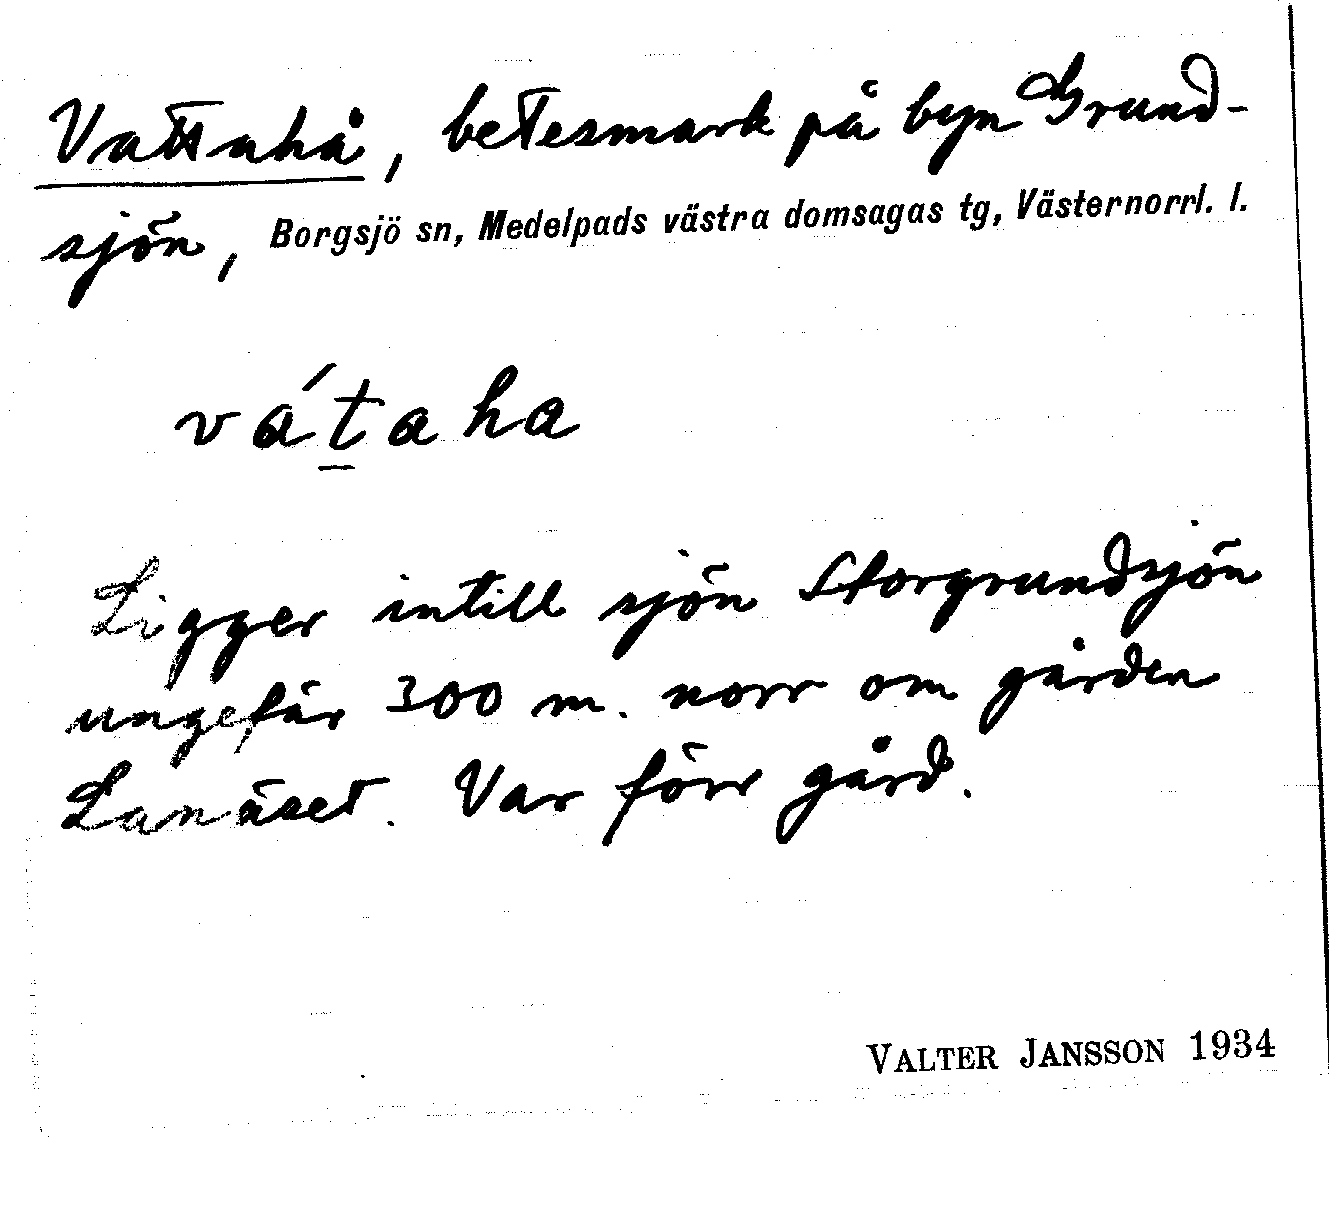 Vattahå, betesmark på byn Grund-
sjön, Borgsjö sn, Medelpads västra domsagas tg, Västernorrl. l.
vát̲aha
Ligger intill sjön Storgrundsjön
ungefär 300 m. norr om gården
Lanäset. Var förr gård.
VALTER JANSSON 1934